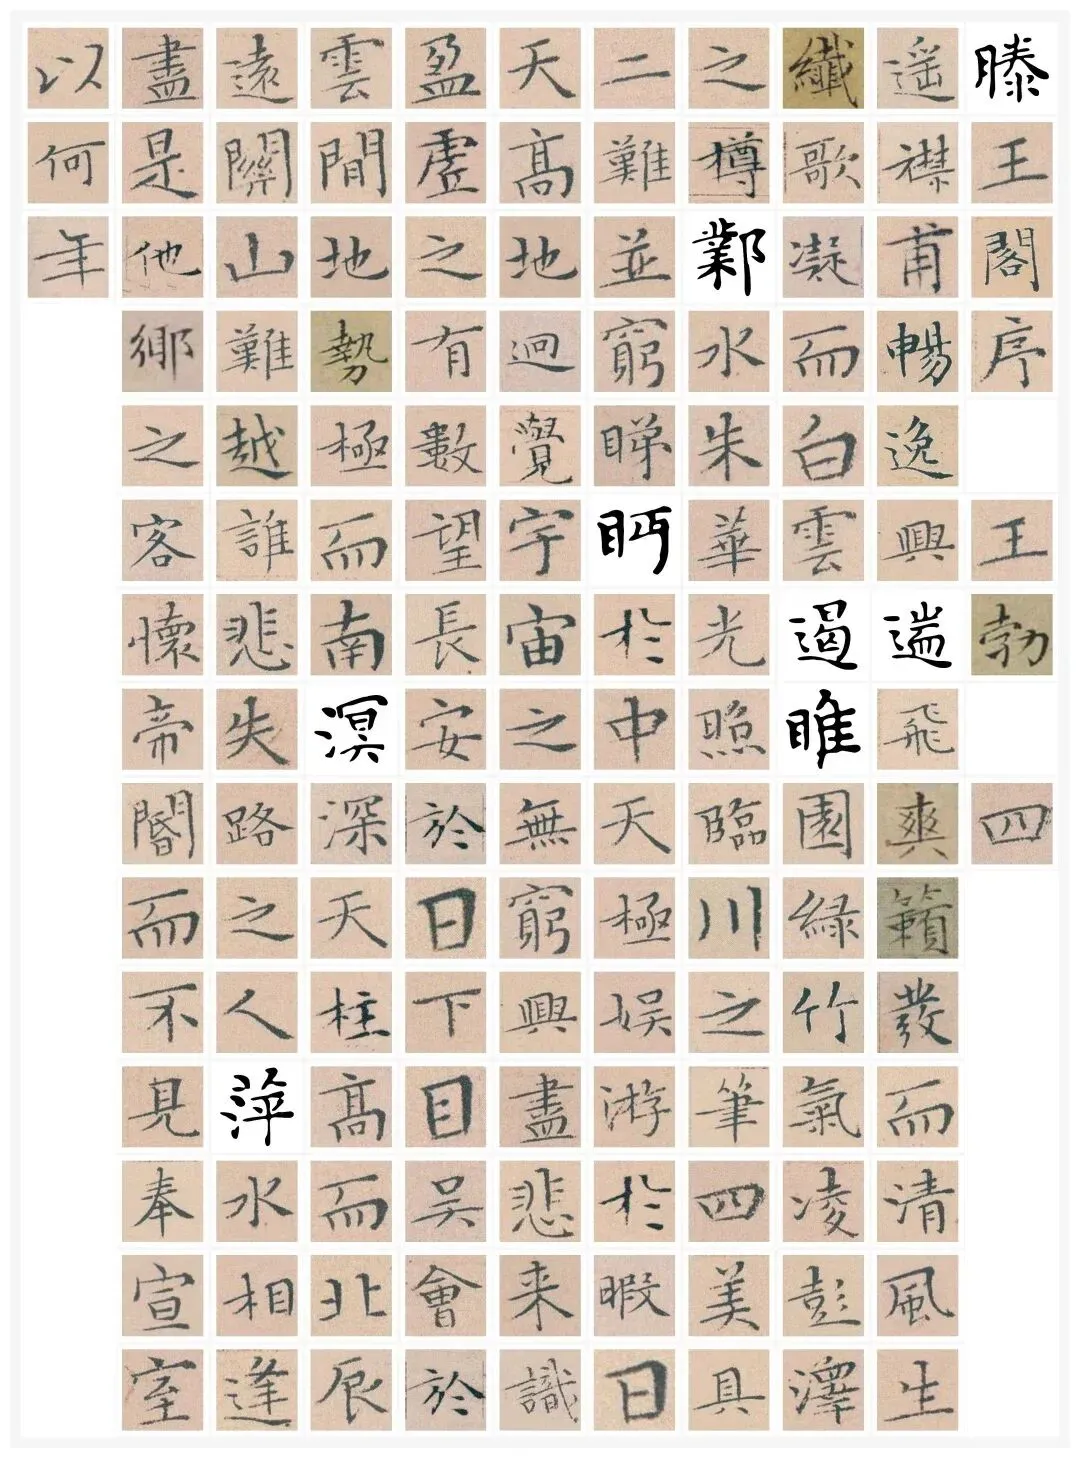 滕王閣序 王勃 四
遥襟甫暢逸興遄飛爽籟發而清風生
纖歌凝而白雲遏睢園緑竹氣凌彭澤
之樽鄴水朱華光照臨川之筆四美具
二難並窮睇眄於中天極娱游於暇日
天高地迥覺宇宙之無窮興盡悲来識
盈虚之有數望長安於日下目吴會於
雲間地勢極而南溟深天柱高而北辰
遠關山難越誰悲失路之人萍水相逢
盡是他鄉之客懷帝閽而不見奉宣室
以何年